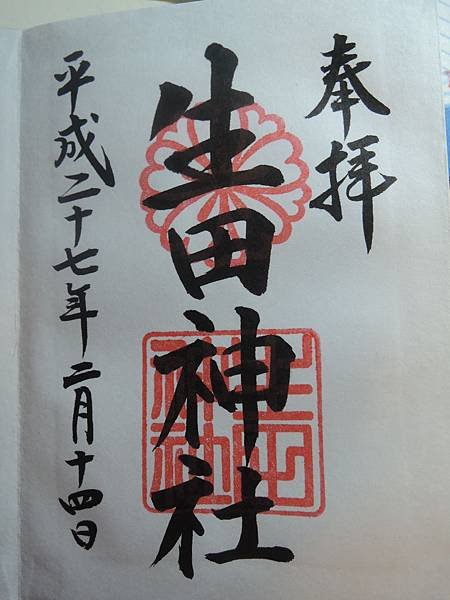 奉拝
生田神社
平成二十七年二月十四日
生田神社